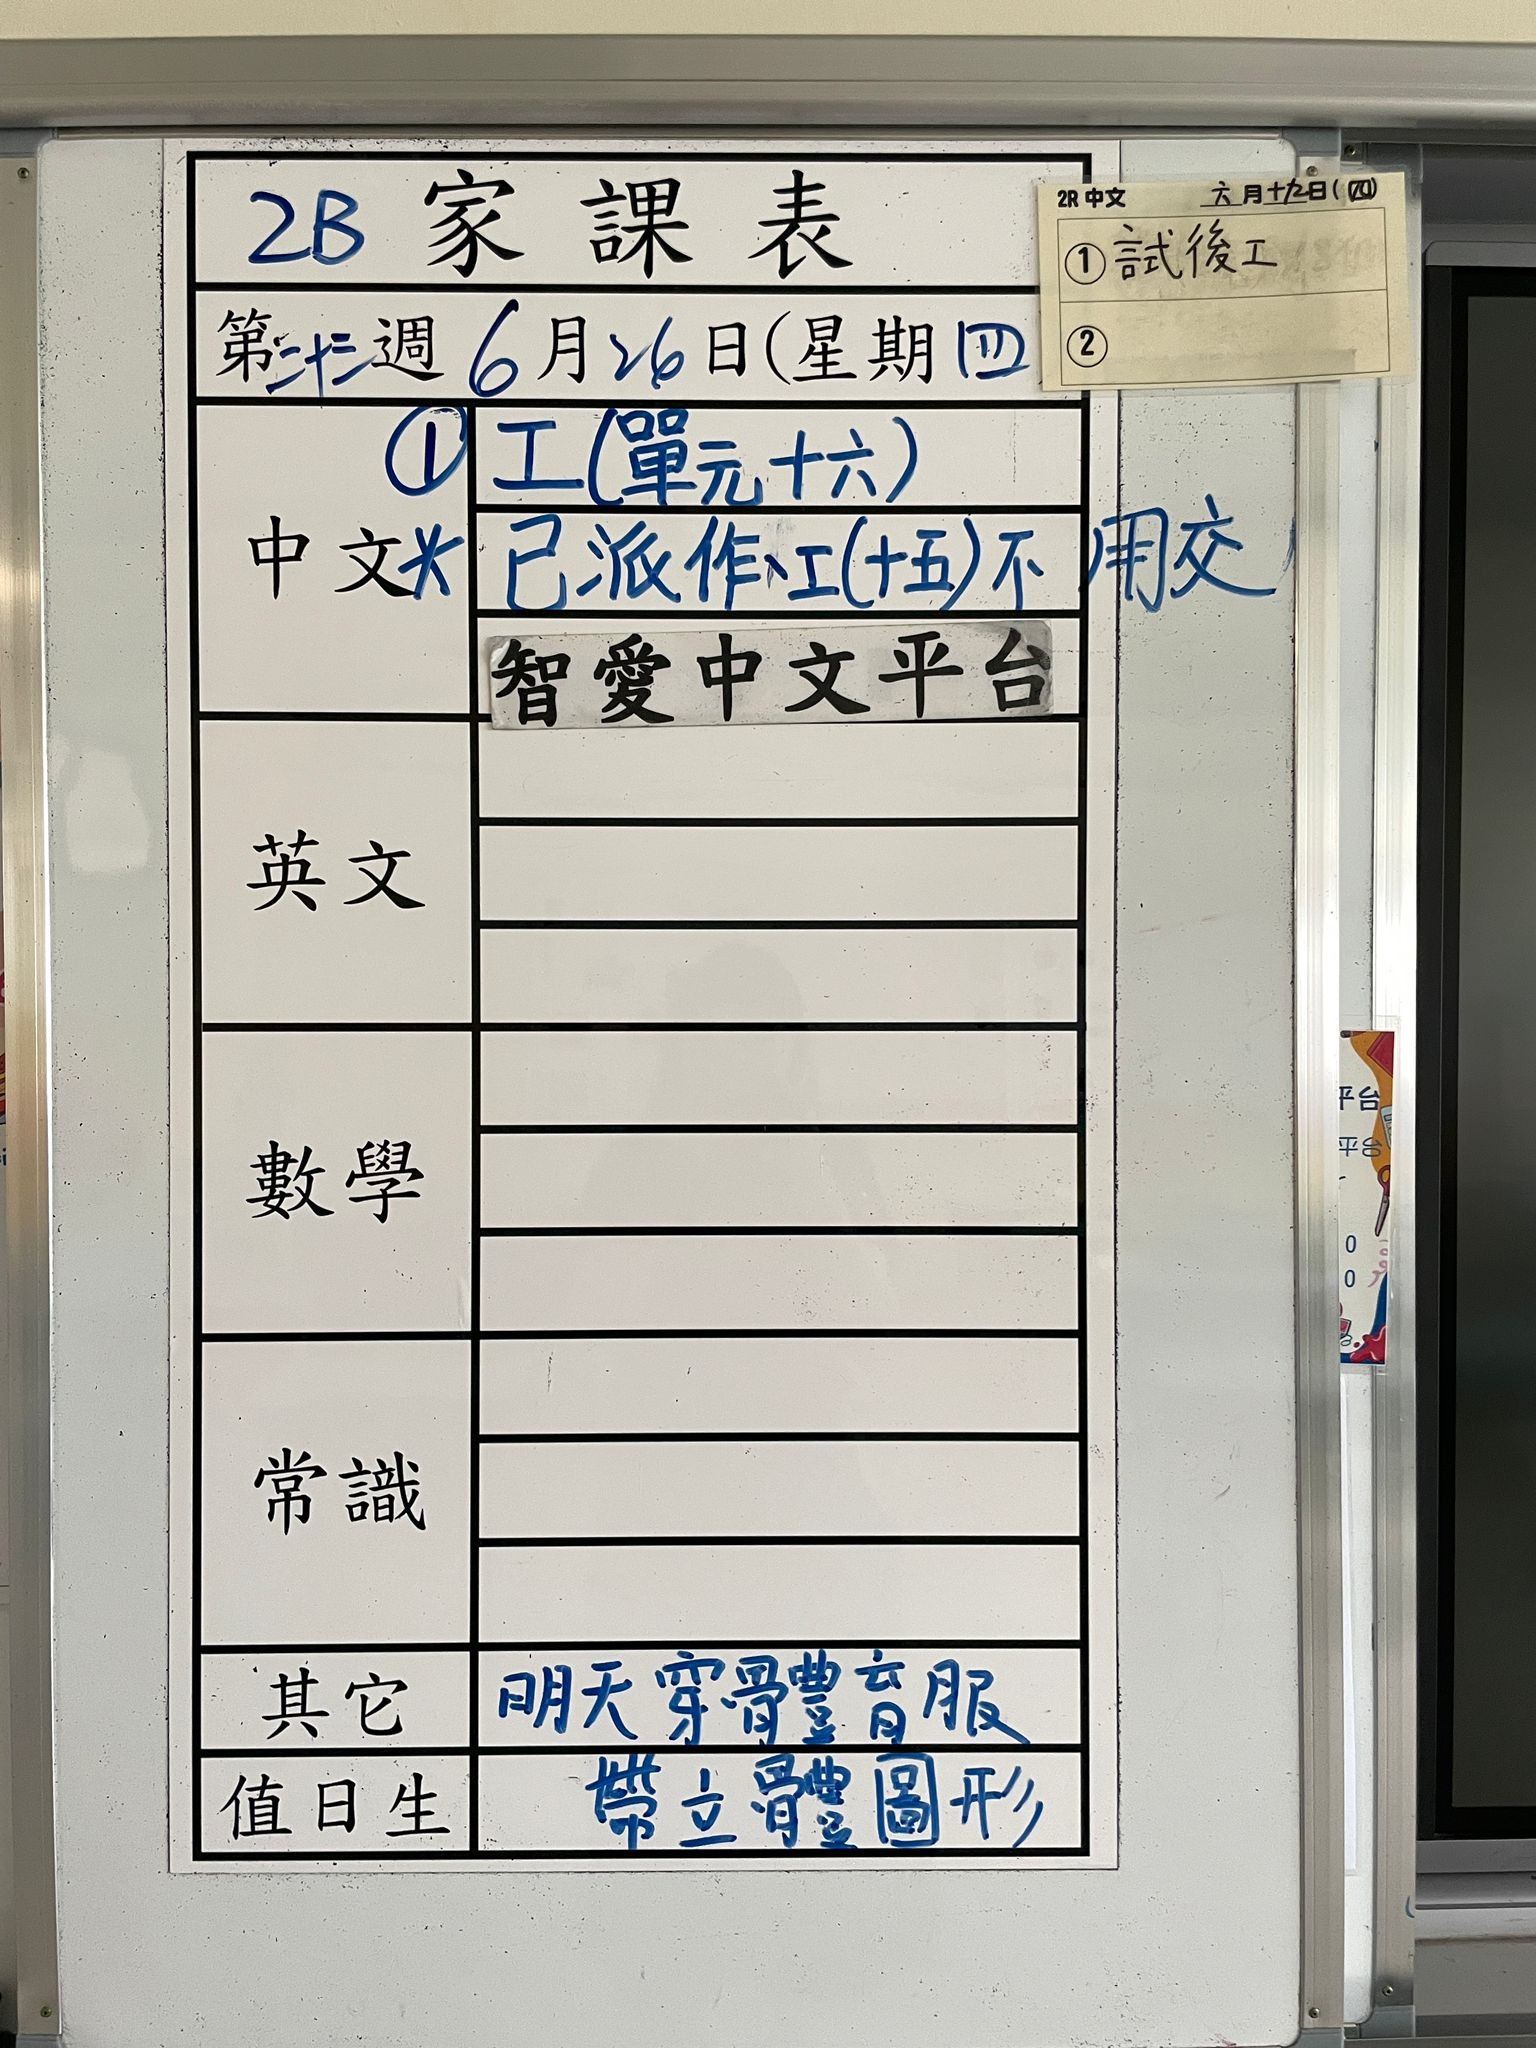 2B 家課表
2R 中文 六月十九日(四)
① 試後工
②
第 週 6月26日(星期四
① 工(單元十六)
中文 * 已派作、工(十五)不用交
智愛中文平台
英文
數學
常識
其它 明天穿體育服
值日生 帶立體圖形
平台
平台
0
0